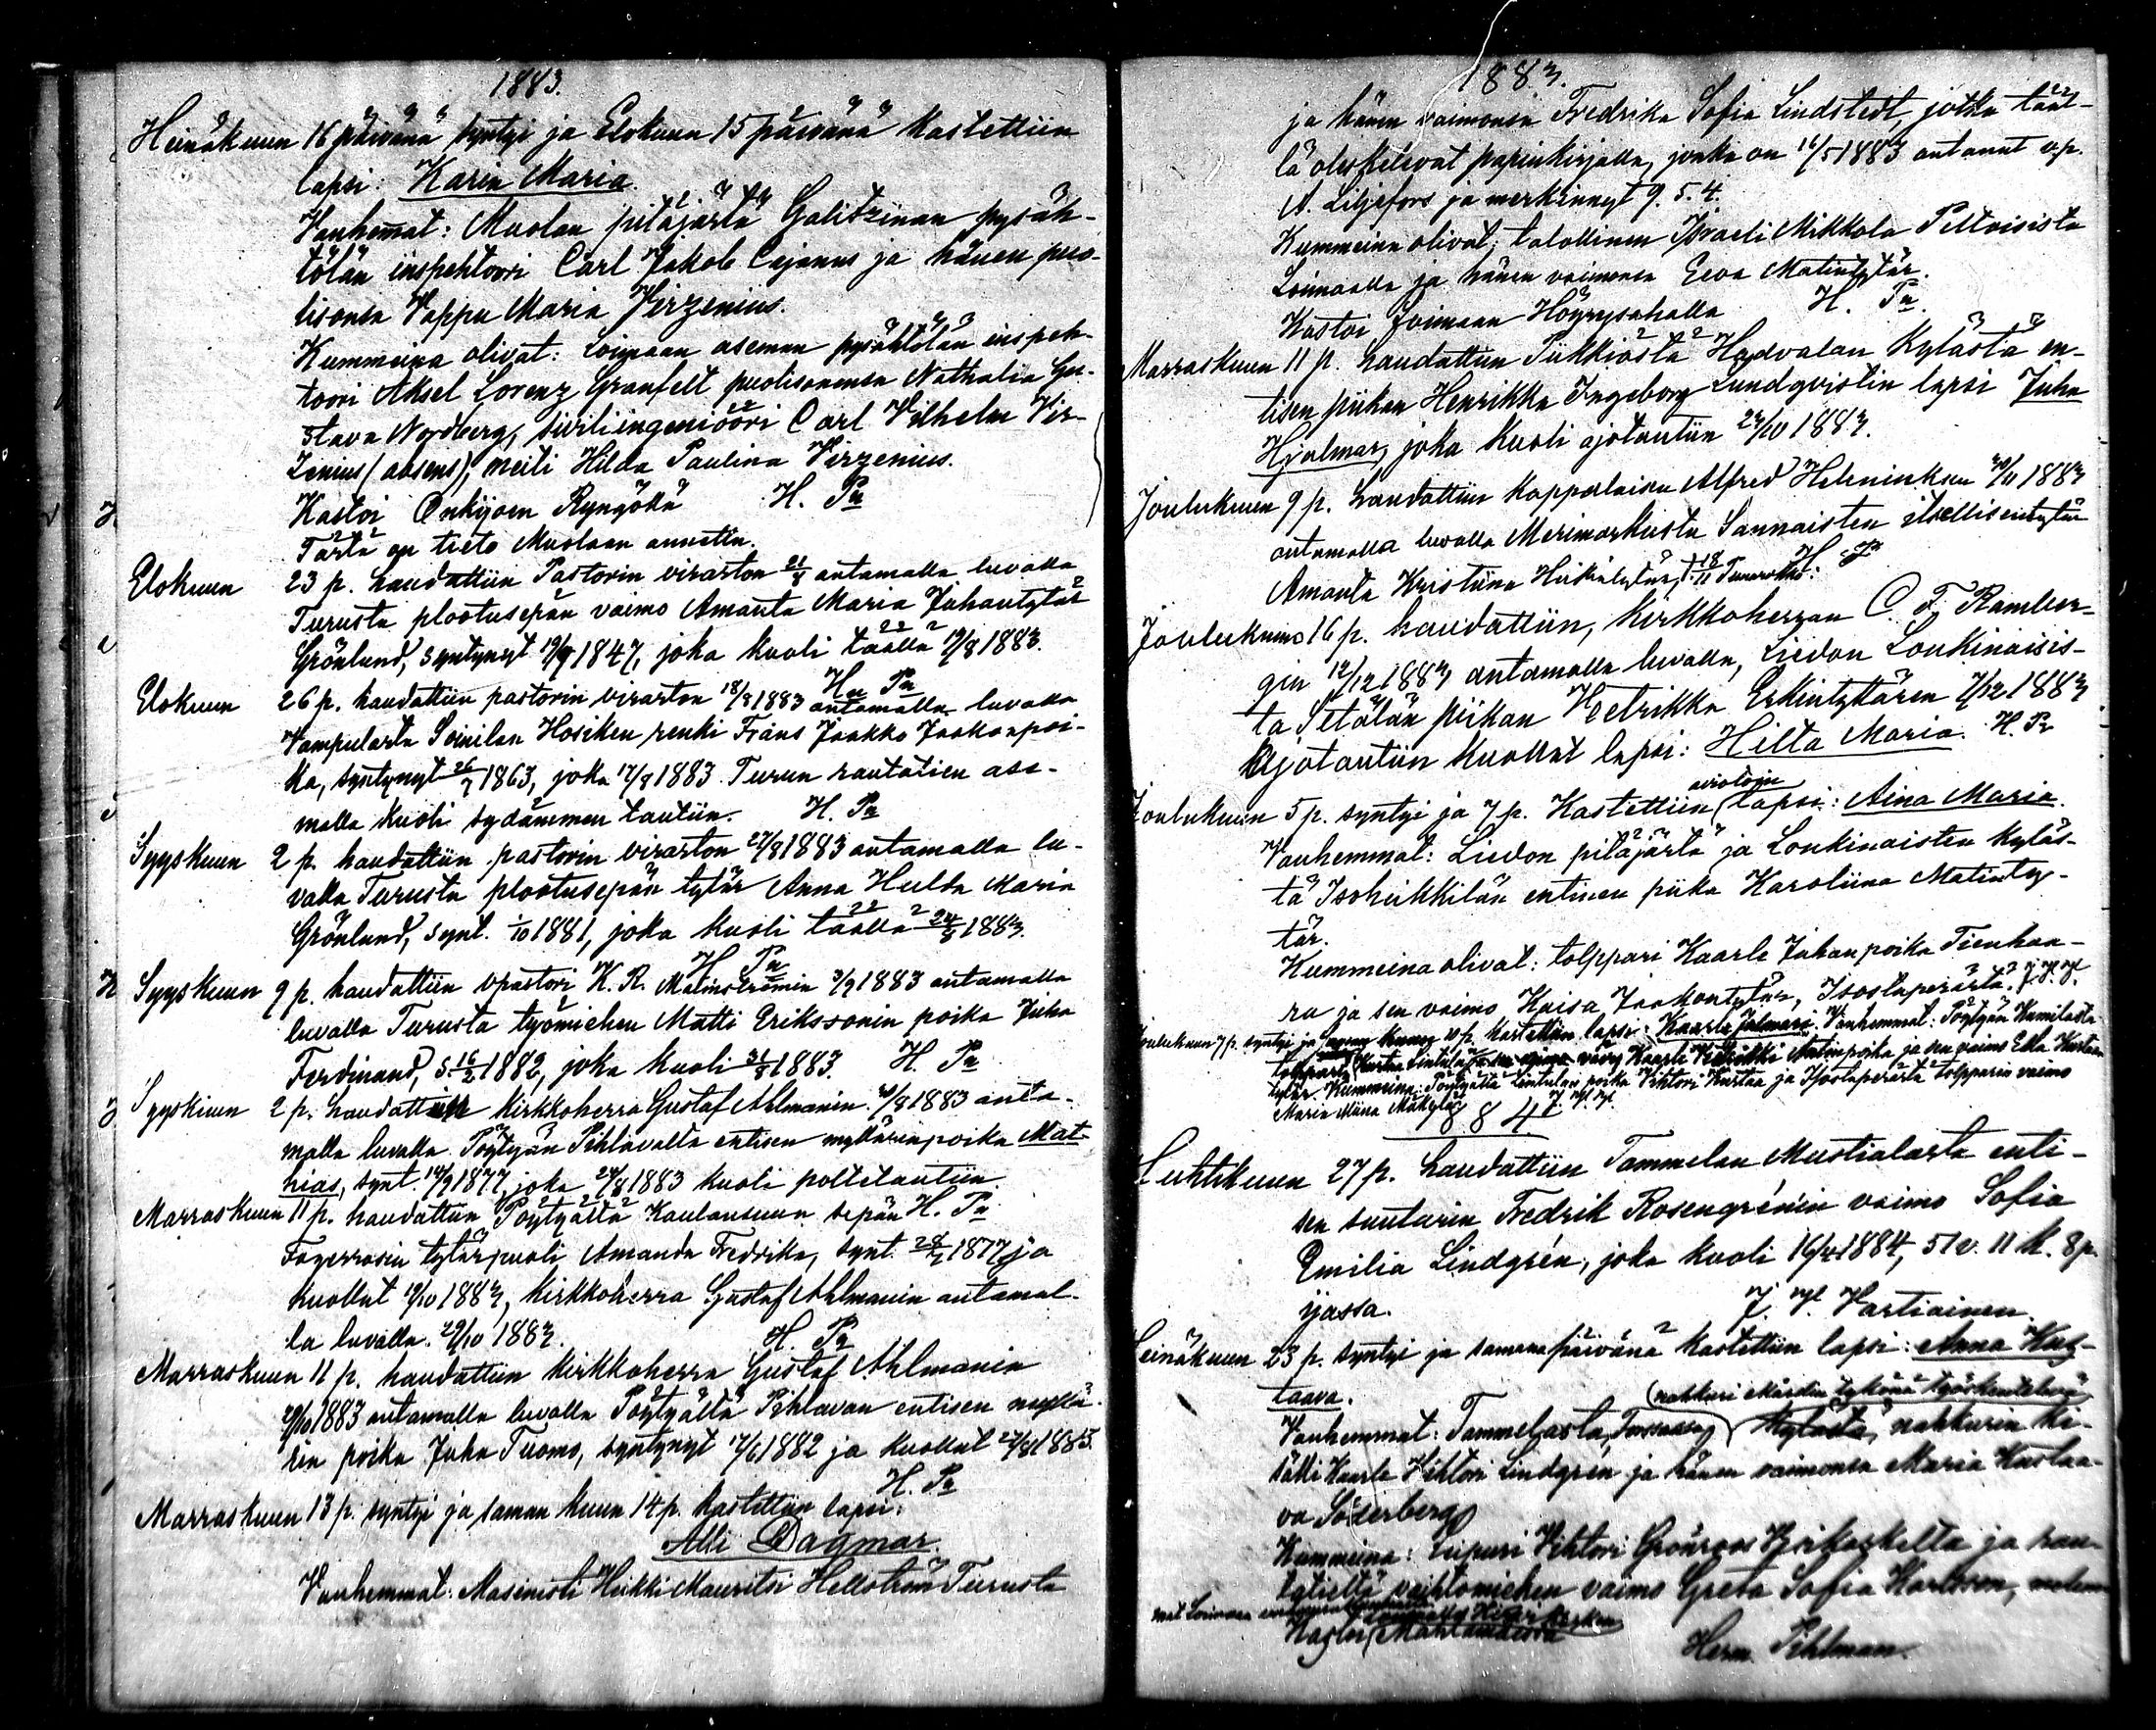 1883.
Heinäkuun 16 päivänä syntyi ja Elokuun 15 päivänä kastettiin
lapsi: Karin Maria.
Vanhemat: Muolan pitäjästä Galitzinan pysäh-
tölän inspehtoori Carl Jakob Cajanus ja hänen puo-
lisonsa Vappu Maria Virzenius.
Kummeina olivat: Loimaan aseman pysähtölän inspeh-
toori Aksel Lorenz Granfelt puolisonensa Nathalia Gu-
stava Nordberg, siviliingeniööri Carl Vilhelm Vir-
zenius (absens), neiti Hilda Paulina Virzenius.
Kastoi Onkijoen Ryngöllä H. Pn
Tästä on tieto Muolaan annettu.
Elokuun 23 p. haudattiin Pastorin viraston 21/8 antamalla luvalla
Turusta plootusepän vaimo Amanta Maria Juhantytär
Grönlund, syntynyt 1847, joka kuoli täällä 19/8 1883.
H. Pn
Elokuun 26 p. haudattiin pastorin viraston 18/8 1883 antamalla luvalla
Vampulasta Soinilan Hosiken renki Frans Jaakko Jaakonpoi-
ka, syntynyt 26/7 1863, joka 17/8 1883 Turun rautatien ase-
malla kuoli sydämmen tautiin. H. Pn
Syyskuun 2 p. haudattiin pastorin viraston 27/8 1883 antamalla lu-
valla Turusta plootusepän tytär Anna Hulda Maria
Grönlund, synt. 1/10 1881, joka kuoli täällä 24/8 1883.
H. Pn
Syyskuun 9 p. haudattiin vpastori K. R. Malmströmin 3/9 1883 antamalla
luvalla Turusta työmiehen Matti Erikssonin poika Juha
Ferdinand, s. 16/2 1882, joka kuoli 31/8 1883. H. Pn
Syyskuun 2 p. haudattiin kirkkoherra Gustaf Ahlmanin 30/8 1883 anta-
malla luvalla Pöytyän Pihlavalta entisen myllärin poika Mat-
hias, synt. 14/9 1877, joka 24/8 1883 kuoli polttetautiin.
Marraskuun 11 p. haudattiin Pöytyältä Kaulansuun sepän H. Pn
Fagerrosin tytärpuoli Amanda Fredrika, synt. 28/7 1877 ja
kuollut 1883, kirkkoherra Gustaf Ahlmanin antamal-
la luvalla 29/10 1883. H. Pn
Marraskuun 11 p. haudattiin kirkkoherra Gustaf Ahlmanin
29/10 1883 antamalla luvalla Pöytyältä Pihlavan entisen myllä-
rin poika Juha Tuomo, syntynyt 17/6 1882 ja kuollut 27/8 1883.
H. Pn
Marraskuun 13 p. syntyi ja saman kuun 14 p. kastettiin lapsi:
Alli Dagmar.
Vanhemmat: Masinisti Heikki Mauritsi Hellström Turusta
1883.
ja hänen vaimonsa Fredrika Sofia Lindstedt, jotka tääl-
lä oleskelevat papinkirjalla, jonka on 16/5 1883 antanut v.p.
A. Liljefors ja merkinnyt 9. 5. 4.
Kummeina olivat: talollinen Israeli Mikkola Peltoisista
Loimaalla ja hänen vaimonsa Eeva Matintytär.
Kastoi Loimaan Höyrysahalla H. Pn.
Marraskuun 11 p. haudattiin Piikkiöstä Hadvalan kylästä en-
tisen piikan Henrikka Ingeborg Lundqvistin lapsi Juha
Hjalmar, joka kuoli ajotautiin 23/10 1883.
Joulukuun 9 p. haudattiin kappalaisen Alfred Heleniuksen 30/11 1883
antamalla luvalla Merimaskusta Sannaisten itsellisentytär
Amanta Kristiina Heikintytär, † 18/11 H. Pn
Joulukuun 16 p. haudattiin, kirkkoherran C. F. Ramber-
gin 12/12 1883 antamalla luvalla, Liedon Loukinaisis-
ta Setälän piikan Hetrikka Erkintyttären 7/12 1883
ajotautiin kuollut lapsi: Hilta Maria. H. Pn
Joulukuun 5 p. syntyi ja 7 p. kastettiin (aviotoin lapsi: Aina Maria.
Vanhemmat: Liedon pitäjästä ja Loukinaisten kyläs-
tä Isoheikkilän entinen piika Karoliina Matinty-
tär.
Kummeina olivat: tolppari Kaarle Juhanpoika Tienhaa-
ra ja sen vaimo Kaisa Jaakontytär, Isostaperästä. J. V. V.
Joulukuun 7 p. syntyi ja 10 p. kastettiin lapsi: Kaarle Jalmari. Vanhemmat: Pöytyän Kumilasta
Kustaa Lintula vävy Kaarle Matinpoika ja sen vaimo Eeva Kustaan
tytär. Kummeina: Pöytyältä Lintulan poika Vihtori Kustaa ja Isostaperästä tolpparin vaimo
Maria Miina Mäkylä. J. V. V.
1884
Huhtikuun 27 p. haudattiin Tammelan Mustialasta enti-
sen suutarin Fredrik Rosengrénin vaimo Sofia
Emilia Lindgrén, joka kuoli 16/4 1884, 51 v. 11 k. 8 p.
ijässa. J. V. Vartiainen.
Heinäkuun 23 p. syntyi ja samana päivänä kastettiin lapsi: Anna Kus-
taava. (nahkuri Mårdin tykönä työskentelevä)
Vanhemmat: Tammelasta, Forssassa, kylästä, nahkurin ki-
sälli Kaarle Vihtori Lindgrén ja hänen vaimonsa Maria Kustaa-
va Söderberg
Kummeina: Vihtori Grönroos ja rau-
tatieltä vaihtomiehen vaimo Greta Sofia Karlsson, molem-
mat Loimaan
Kastoi
Herm. Pihlman.